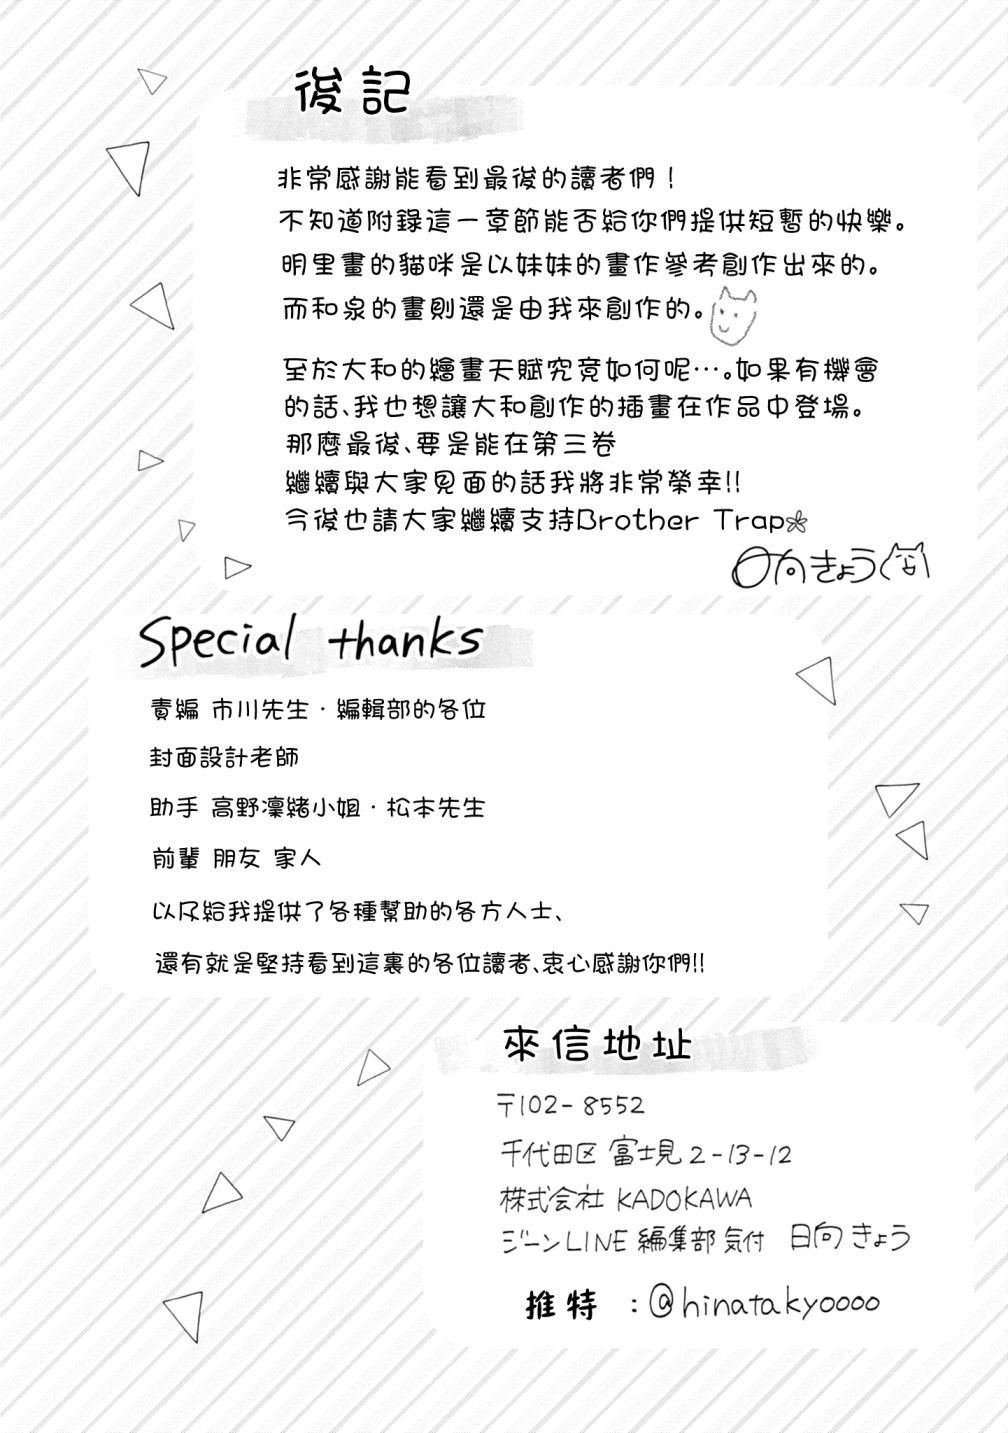 後記
非常感謝能看到最後的讀者們！
不知道附錄這一章節能否給你們提供短暫的快樂。
明里畫的貓咪是以妹妹的畫作參考創作出來的。
而和泉的畫則還是由我來創作的。
至於大和的繪畫天賦究竟如何呢…。如果有機會
的話、我也想讓大和創作的插畫在作品中登場。
那麼最後、要是能在第三卷
繼續與大家見面的話我將非常榮幸!!
今後也請大家繼續支持Brother Trap
日向きょう
Special thanks
責編 市川先生・編輯部的各位
封面設計老師
助手 高野凜緒小姐・松本先生
前輩 朋友 家人
以及給我提供了各種幫助的各方人士、
還有就是堅持看到這裏的各位讀者、衷心感謝你們!!
來信地址
〒102-8552
千代田区 富士見2-13-12
株式会社 KADOKAWA
ジーンLINE 編集部 気付 日向きょう
推特 : @hinatakyoooo